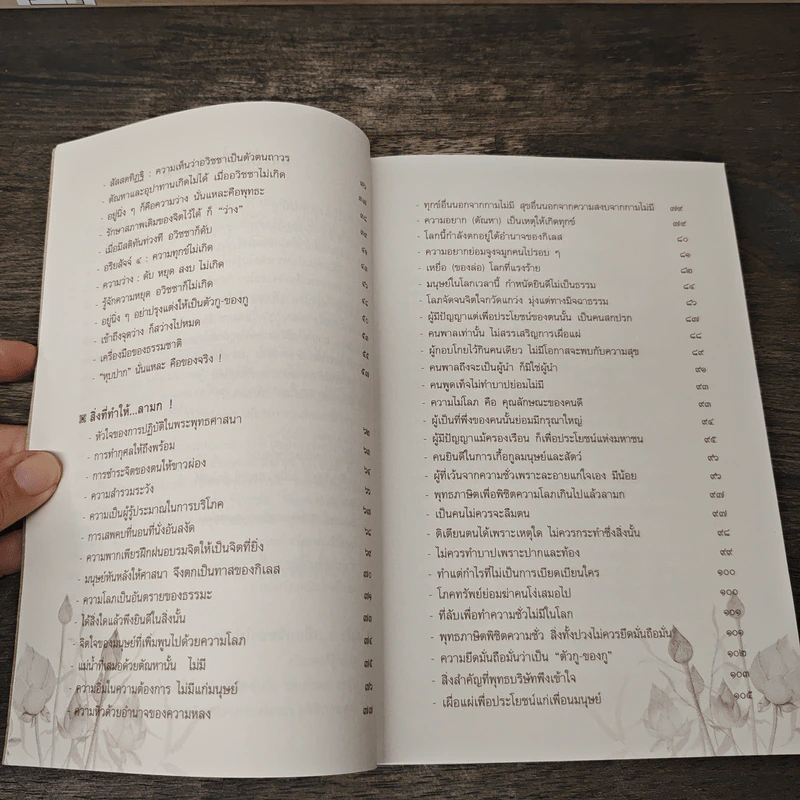 - สัสสตทิฏฐิ : ความเห็นว่าอวิชชาเป็นตัวตนถาวร
- ตัณหาและอุปาทานเกิดไม่ได้ เมื่ออวิชชาไม่เกิด
- อยู่นิ่ง ๆ ก็คือความว่าง นั่นแหละคือพุทธะ
- รักษาสภาพเดิมของจิตไว้ได้ ก็ “ว่าง”
- เมื่อมีสติทันท่วงที อวิชชาก็ดับ
- อริยสัจจ์ ๔ : ความทุกข์ไม่เกิด
- ความว่าง : ดับ หยุด สงบ ไม่เกิด
- รู้จักความหยุด อวิชชาก็ไม่เกิด
- อยู่นิ่ง ๆ อย่าปรุงแต่งให้เป็นตัวกู-ของกู
- เข้าถึงจุดว่าง ก็สว่างไปหมด
- เครื่องมือของธรรมชาติ
- “หุบปาก” นั่นแหละ คือของจริง !
สิ่งที่ทำให้...ลามก !
- หัวใจของการปฏิบัติในพระพุทธศาสนา
- การทำกุศลให้ถึงพร้อม
- การชำระจิตของตนให้ขาวผ่อง
- ความสำรวมระวัง
- ความเป็นผู้รู้ประมาณในการบริโภค
- การเสพคบที่นอนที่นั่งอันสงัด
- ความพากเพียรฝึกฝนอบรมจิตให้เป็นจิตที่ยิ่ง
- มนุษย์หันหลังให้ศาสนา จึงตกเป็นทาสของกิเลส ๗๐
- ความโลภเป็นอันตรายของธรรมะ ๗๑
- ได้สิ่งใดแล้วพึงยินดีในสิ่งนั้น ๗๓
- จิตใจของมนุษย์ที่เพิ่มพูนไปด้วยความโลภ ๗๔
- แม่น้ำที่เสมอด้วยตัณหานั้น ไม่มี ๗๕
- ความอิ่มในความต้องการ ไม่มีแก่มนุษย์ ๗๖
- ความหิวด้วยอำนาจของความหลง ๗๗
- ทุกข์อื่นนอกจากกามไม่มี สุขอื่นนอกจากความสงบจากกามไม่มี ๗๙
- ความอยาก (ตัณหา) เป็นเหตุให้เกิดทุกข์ ๗๙
- โลกนี้กำลังตกอยู่ใต้อำนาจของกิเลส ๘๐
- ความอยากย่อมจูงจมูกคนไปรอบ ๆ ๘๑
- เหยื่อ (ของล่อ) โลกที่แรงร้าย ๘๒
- มนุษย์ในโลกเวลานี้ กำหนัดยินดีไม่เป็นธรรม ๘๔
- โลภจัดจนจิตใจกวัดแกว่ง มุ่งแต่ทางมิจฉาธรรม ๘๖
- ผู้มีปัญญาแต่เพื่อประโยชน์ของตนนั้น เป็นคนสกปรก ๘๗
- คนพาลเท่านั้น ไม่สรรเสริญการเผื่อแผ่ ๘๘
- ผู้กอบโกยไว้กินคนเดียว ไม่มีโอกาสจะพบกับความสุข ๘๙
- คนพาลถึงจะเป็นผู้นำ ก็มิใช่ผู้นำ ๙๑
- คนพูดเท็จไม่ทำบาปย่อมไม่มี ๙๓
- ความไม่โลภ คือ คุณลักษณะของคนดี ๙๓
- ผู้เป็นที่พึ่งของคนนั้นย่อมมีกรุณาใหญ่ ๙๔
- ผู้มีปัญญาแม้ครองเรือน ก็เพื่อประโยชน์แห่งมหาชน ๙๕
- คนยินดีในการเกื้อกูลมนุษย์และสัตว์ ๙๖
- ผู้ที่เว้นจากความชั่วเพราะละอายแก่ใจเอง มีน้อย ๙๖
- พุทธภาษิตเพื่อพิชิตความโลภเกินไปแล้วลามก ๙๗
- เป็นคนไม่ควรจะลืมตน ๙๗
- ติเตียนตนได้เพราะเหตุใด ไม่ควรกระทำซึ่งสิ่งนั้น ๙๘
- ไม่ควรทำบาปเพราะปากและท้อง ๙๙
- ทำแต่กำไรที่ไม่เป็นการเบียดเบียนใคร ๑๐๐
- โภคทรัพย์ย่อมฆ่าคนโง่เสมอไป ๑๐๐
- ที่ลับเพื่อทำความชั่วไม่มีในโลก ๑๐๑
- พุทธภาษิตพิชิตความชั่ว สิ่งทั้งปวงไม่ควรยึดมั่นถือมั่น ๑๐๑
- ความยึดมั่นถือมั่นว่าเป็น “ตัวกู-ของกู” ๑๐๒
- สิ่งสำคัญที่พุทธบริษัทพึงเข้าใจ ๑๐๓
- เผื่อแผ่เพื่อประโยชน์แก่เพื่อนมนุษย์ ๑๐๕